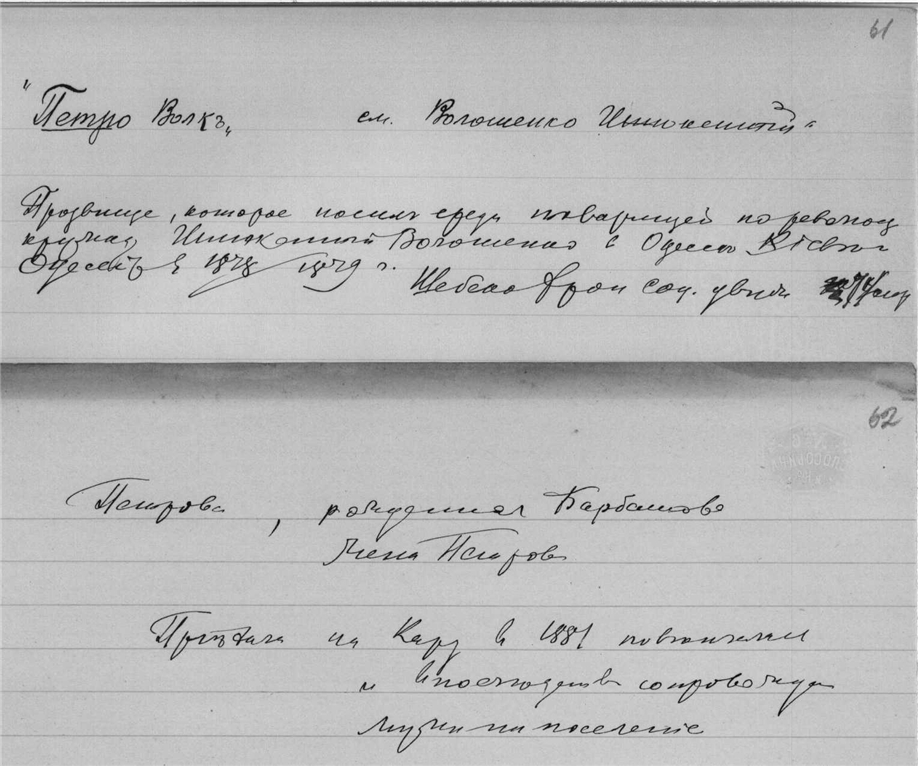 61
"Петро Волкъ" см. Волошенко Иннокентий"
Прозвище, которое носил среди товарищей по революц
кружку Иннокентий Волошенко в Одессе
Одессѣ в 1878/1879 г.
62
Петрова, рожденная Карбаинова
Жена Петрова
Приѣхала на Кару в 1881
и впоследств сопровождала
мужа на поселение